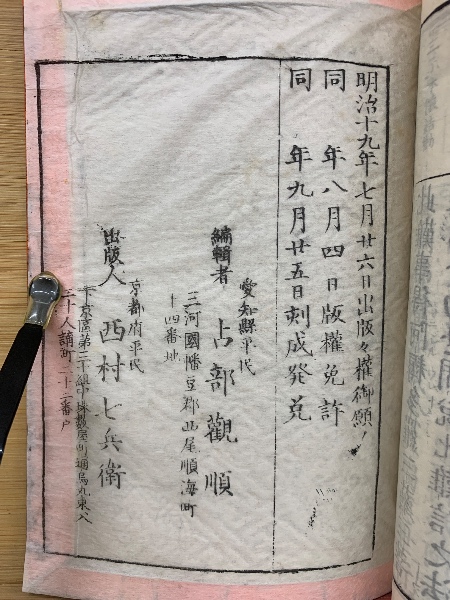 明治十九年七月廿六日出版々權御願
同　年八月四日版權免許
同　年九月廿五日刻成発兌
愛知縣平民
編輯者　占部觀順
三河國幡豆郡西尾順海町
十四番地
京都府平民
出版人　西村七兵衛
下京區第三十組中珠數屋町通烏丸東入
二十人講町二十二番戸